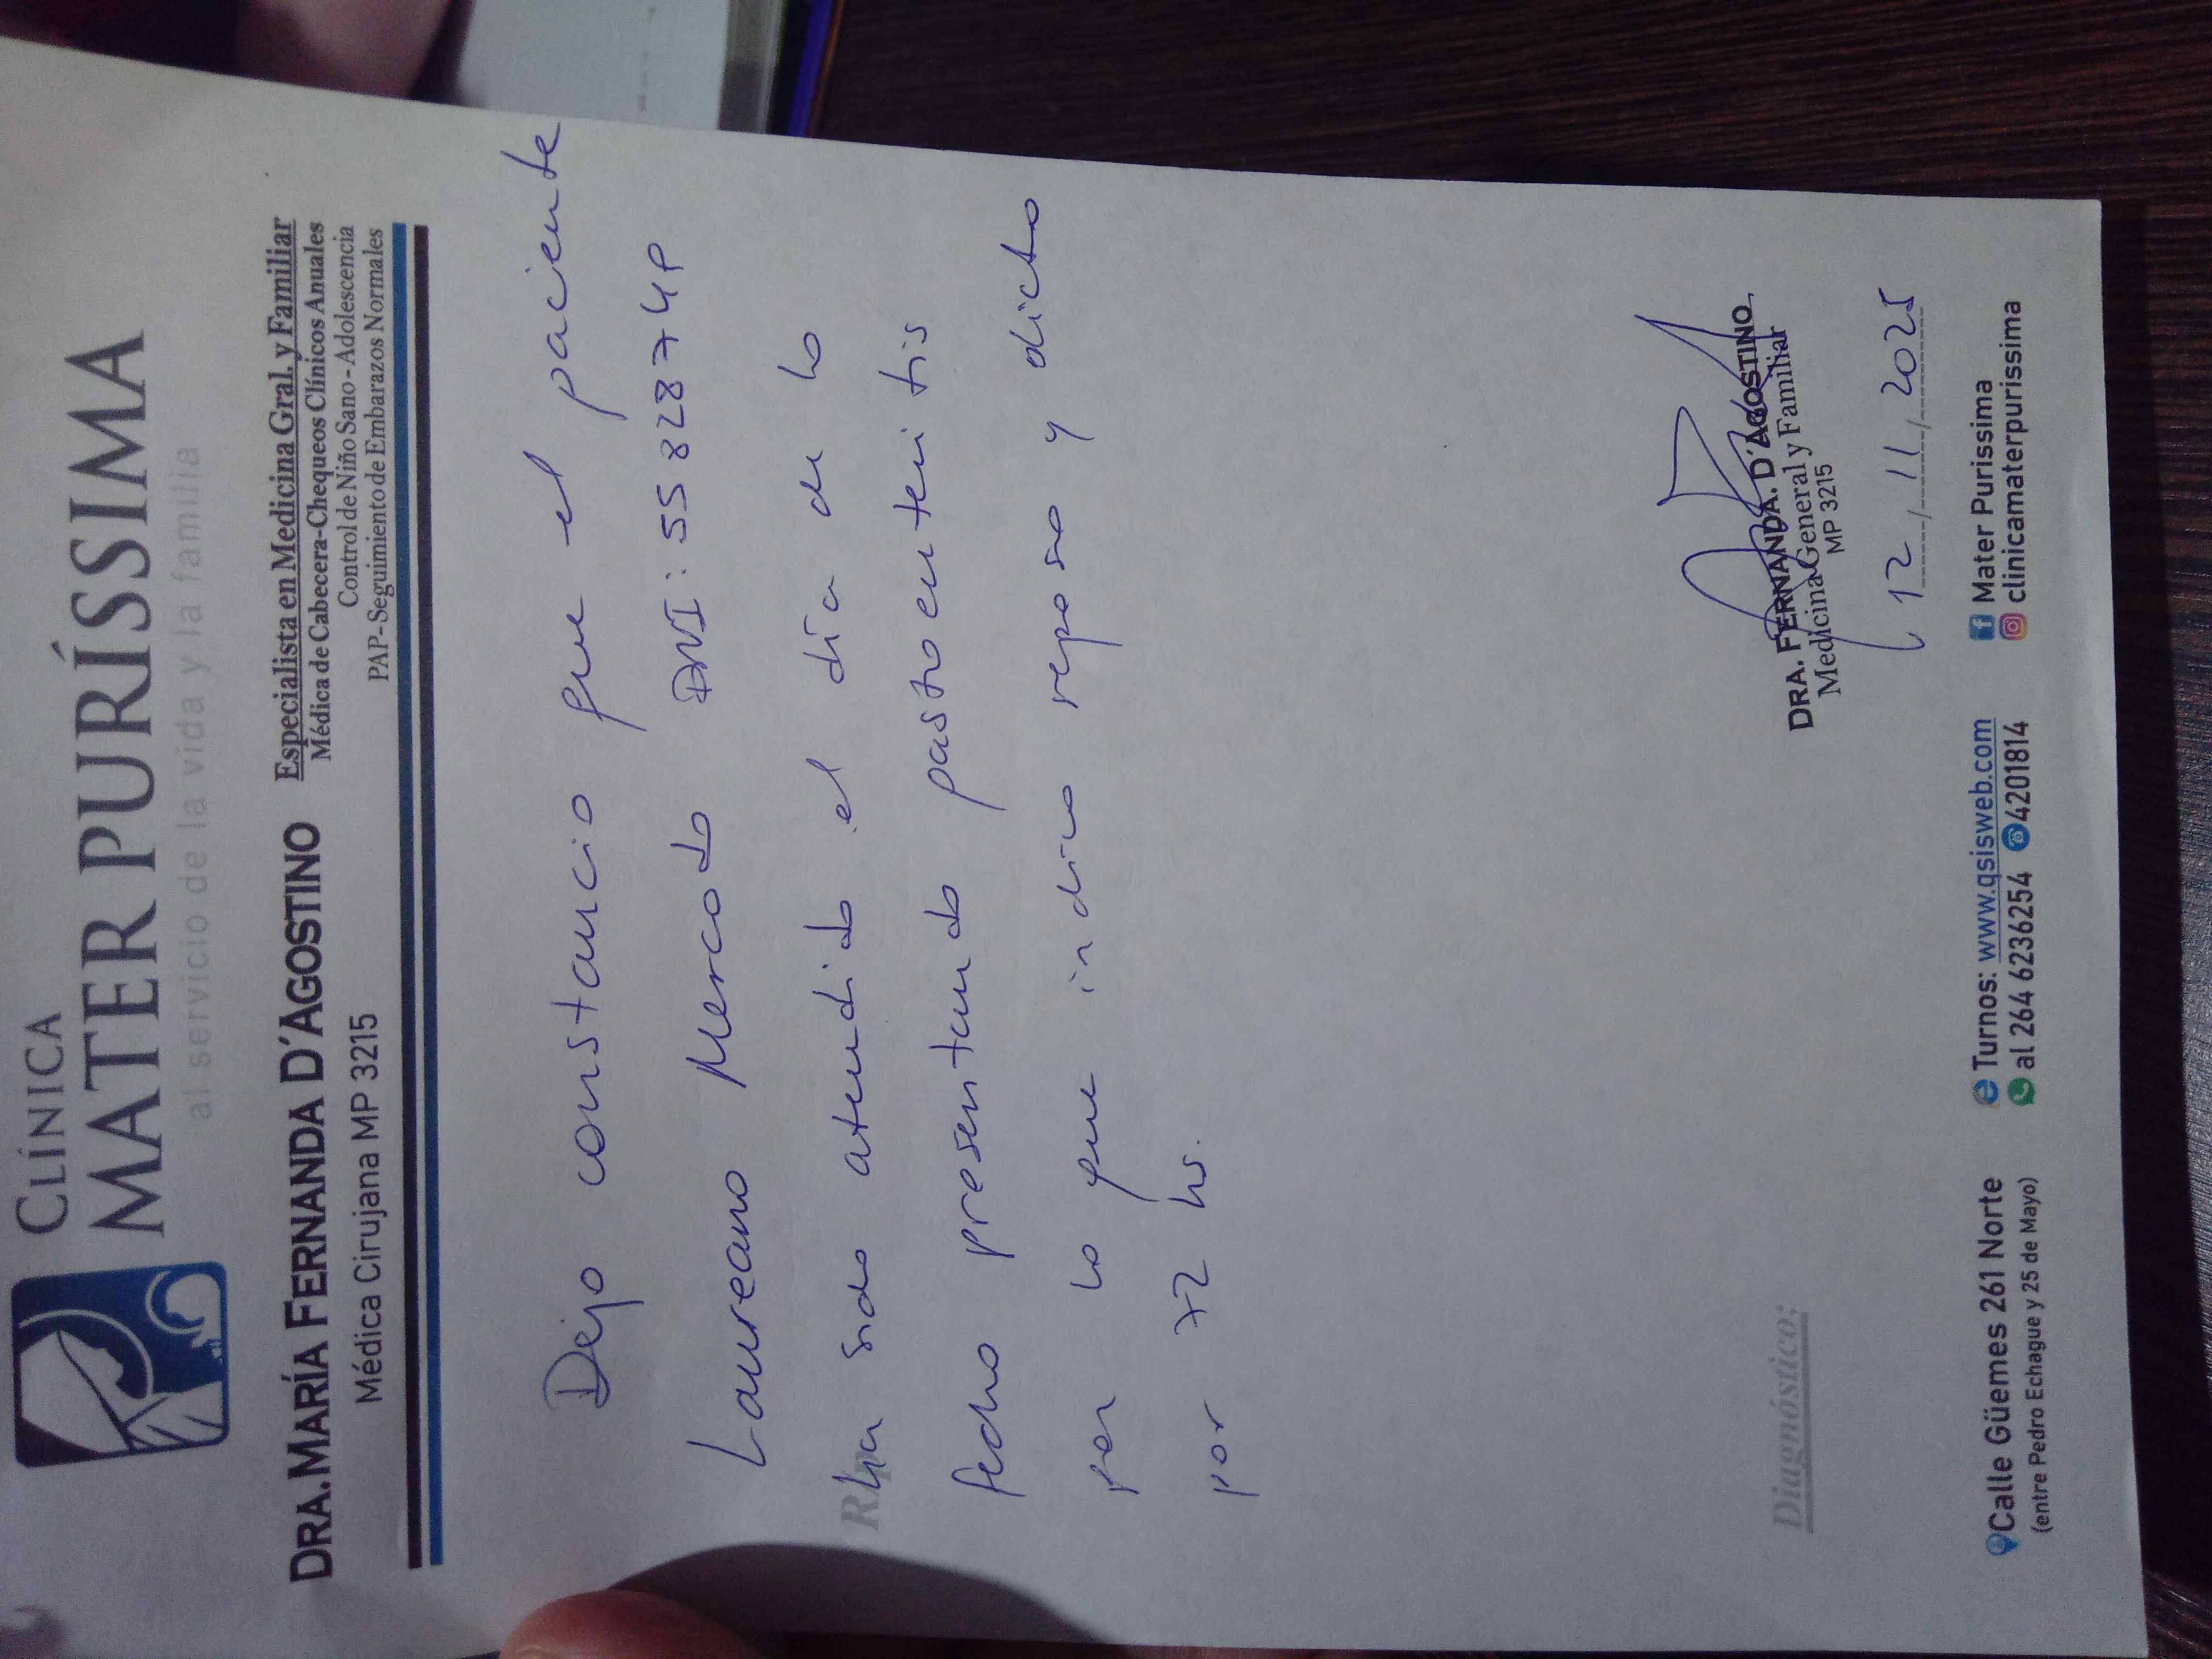 CLÍNICA
MATER PURÍSSIMA
al servicio de la vida y la familia
DRA. MARÍA FERNANDA D'AGOSTINO
Médica Cirujana MP 3215
Especialista en Medicina Gral. y Familiar
Médica de Cabecera-Chequeos Clínicos Anuales
Control de Niño Sano - Adolescencia
PAP-Seguimiento de Embarazos Normales
Dejo constancia que el paciente
Laureano Mercado DNI: 55828749
Rp
ha sido atendido el día de la
fecha presentando gastroenteritis
por lo que indico reposo y dieta
por 72 hs.
DRA. FERNANDA. D'AGOSTINO
Medicina General y Familiar
MP 3215
12/11/2025
Diagnóstico:
Calle Güemes 261 Norte
(entre Pedro Echague y 25 de Mayo)
Turnos: www.qsisweb.com
al 264 6236254 4201814
Mater Purissima
clinicamaterpurissima